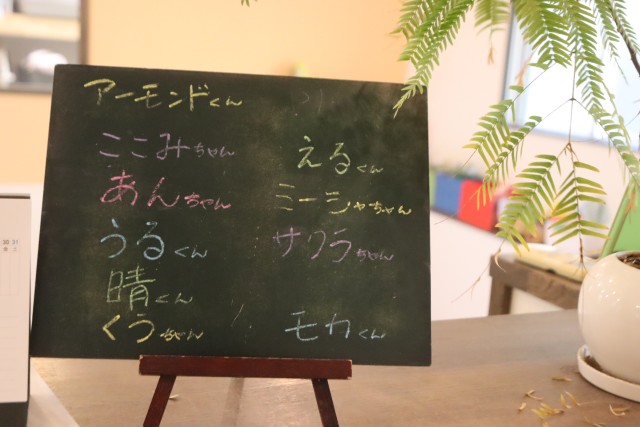 アーモンドくん
ここみちゃん
あんちゃん
うるくん
晴くん
くうちゃん
えるくん
ミーシャちゃん
サクラちゃん
モカくん
30 31